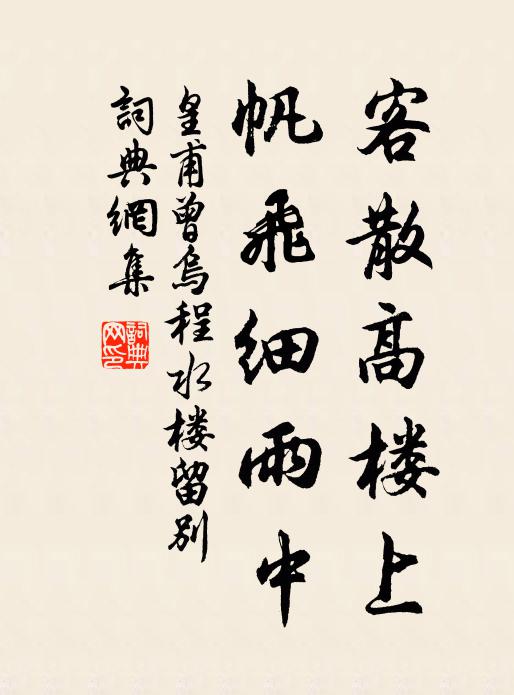 客散高楼上
帆飛细雨中
皇甫曾烏程水楼留别
詞典網集
詞典网印